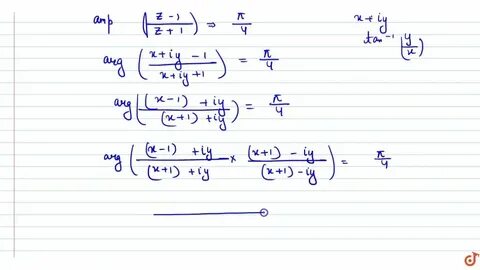 amp (z - 1 / z + 1) ⇒ π/4
x + iy
tan⁻¹ (y/x)
arg (x + iy - 1 / x + iy + 1) = π/4
arg ((x - 1) + iy / (x + 1) + iy) = π/4
arg ((x - 1) + iy / (x + 1) + iy × (x + 1) - iy / (x + 1) - iy) = π/4